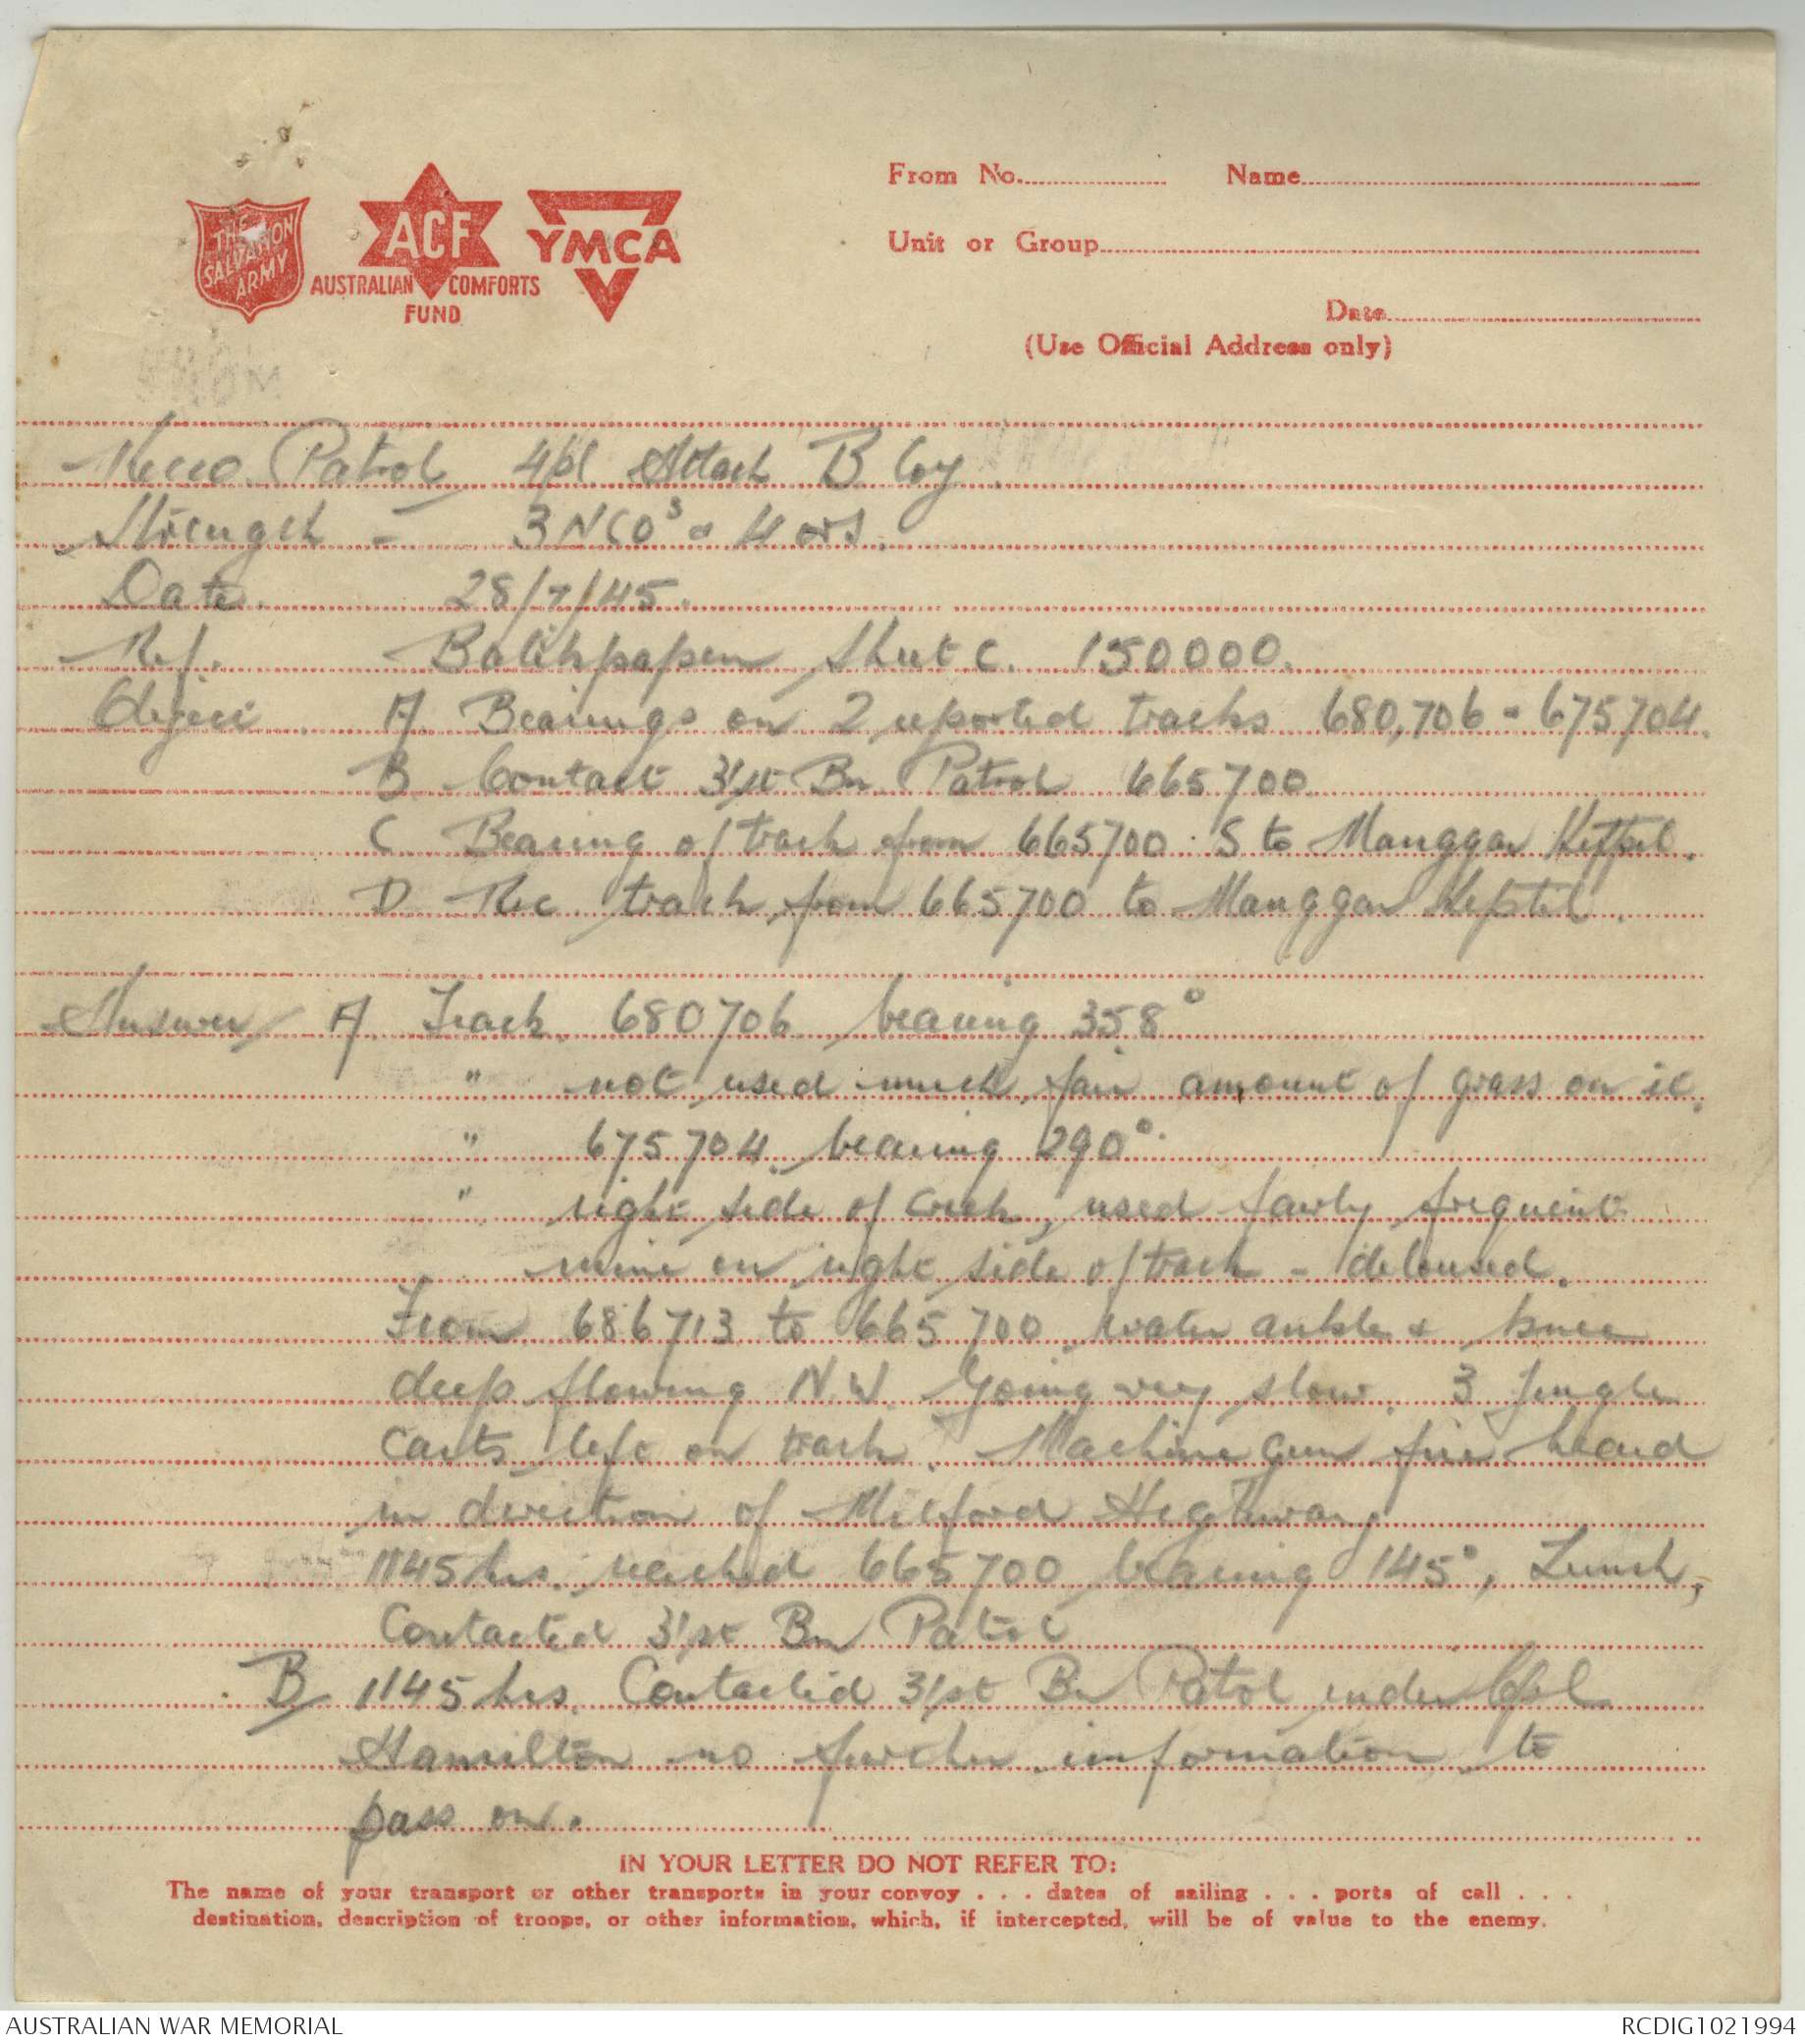 THE SALVATION ARMY
ACF
AUSTRALIAN COMFORTS FUND
YMCA
From No. Name
Unit or Group
Date
(Use Official Address only)
Recce Patrol 4pl Attach B Coy.
Strength - 3 NCOs & 4 ors.
Date. 28/7/45.
Ref. Balikpapan Sheet C. 150000.
Object. A Bearings on 2 reported tracks 680,706 - 675704.
B Contact 31st Bn Patrol 665700
C Bearing of track from 665700 S to Manggar
D Rec. track from 665700 to Manggar
Answer A Track 680706 bearing 358°
" not used much fair amount of grass on it.
" 675704 bearing 290°.
" right side of creek, used fairly frequent
mine on right side of track - deloused.
From 686713 to 665700 water ankle & knee
deep flowing N.W. Going very slow. 3 Jungle
Carts left on track. Machine gun fire heard
in direction of Milford Highway
1145 hrs. reached 665700 bearing 145°, Lunch,
Contacted 31st Bn Patrol
B 1145 hrs. Contacted 31st Bn Patrol under Cpl
Hamilton no further information to
pass on.
IN YOUR LETTER DO NOT REFER TO:
The name of your transport or other transports in your convoy . . . dates of sailing . . . ports of call . . .
destination, description of troops, or other information, which, if intercepted, will be of value to the enemy.
AUSTRALIAN WAR MEMORIAL RCDIG1021994